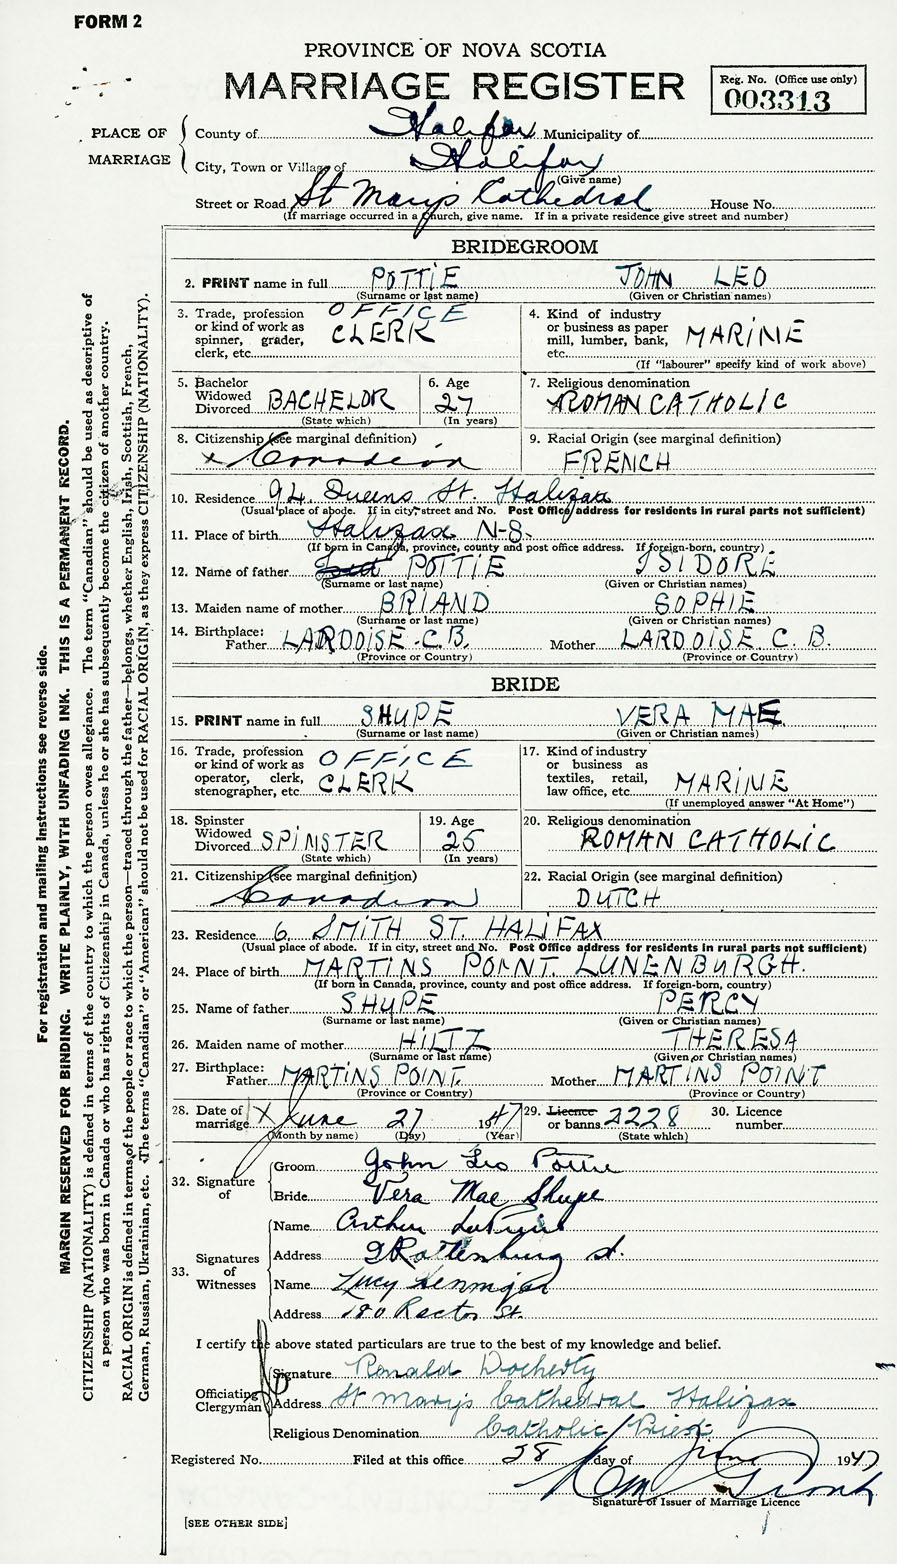 FORM 2
PROVINCE OF NOVA SCOTIA
MARRIAGE REGISTER
Reg. No. (Office use only)
003313
PLACE OF MARRIAGE
County of Halifax Municipality of
City, Town or Village of Halifax
(Give name)
Street or Road St Marys Cathedral House No.
(If marriage occurred in a church, give name. If in a private residence give street and number)
BRIDEGROOM
2. PRINT name in full POTTIE JOHN LEO
(Surname or last name) (Given or Christian names)
3. Trade, profession or kind of work as spinner, grader, clerk, etc. OFFICE CLERK
4. Kind of industry or business as paper mill, lumber, bank, etc. MARINE
(If "labourer" specify kind of work above)
5. Bachelor Widowed Divorced BACHELOR
(State which)
6. Age 27
(In years)
7. Religious denomination ROMAN CATHOLIC
8. Citizenship (see marginal definition) x Canadian
9. Racial Origin (see marginal definition) FRENCH
10. Residence 94 Queens St. Halifax
(Usual place of abode. If in city, street and No. Post Office address for residents in rural parts not sufficient)
11. Place of birth Halifax N-S.
(If born in Canada, province, county and post office address. If foreign-born, country)
12. Name of father POTTIE ISIDORE
(Surname or last name) (Given or Christian names)
13. Maiden name of mother BRIAND SOPHIE
(Surname or last name) (Given or Christian names)
14. Birthplace: Father LARDOISE C.B. Mother LARDOISE C.B.
(Province or Country) (Province or Country)
BRIDE
15. PRINT name in full SHUPE VERA MAE
(Surname or last name) (Given or Christian names)
16. Trade, profession or kind of work as operator, clerk, stenographer, etc OFFICE CLERK
17. Kind of industry or business as textiles, retail, law office, etc. MARINE
(If unemployed answer "At Home")
18. Spinster Widowed Divorced SPINSTER
(State which)
19. Age 25
(In years)
20. Religious denomination ROMAN CATHOLIC
21. Citizenship (see marginal definition) Canadian
22. Racial Origin (see marginal definition) DUTCH
23. Residence 6. SMITH ST. HALIFAX
(Usual place of abode. If in city, street and No. Post Office address for residents in rural parts not sufficient)
24. Place of birth MARTINS POINT. LUNENBURGH.
(If born in Canada, province, county and post office address. If foreign-born, country)
25. Name of father SHUPE PERCY
(Surname or last name) (Given or Christian names)
26. Maiden name of mother HILTZ THERESA
(Surname or last name) (Given or Christian names)
27. Birthplace: Father MARTINS POINT. Mother MARTINS POINT
(Province or Country) (Province or Country)
28. Date of marriage x June 27 1947
(Month by name) (Day) (Year)
29. Licence or banns 2228
(State which)
30. Licence number
32. Signature of
Groom John Leo Pottie
Bride Vera Mae Shupe
33. Signatures of Witnesses
Name Arthur
Address 9 Rattenburg st.
Name Lucy
Address 180 Rector St.
I certify the above stated particulars are true to the best of my knowledge and belief.
Officiating Clergyman
Signature Ronald Docherty
Address St Marys Cathedral Halifax
Religious Denomination Catholic Priest
Registered No. Filed at this office 28 day of June 1947
Signature of Issuer of Marriage Licence
[SEE OTHER SIDE]
For registration and mailing instructions see reverse side.
MARGIN RESERVED FOR BINDING. WRITE PLAINLY, WITH UNFADING INK. THIS IS A PERMANENT RECORD.
CITIZENSHIP (NATIONALITY) is defined in terms of the country to which the person owes allegiance. The term "Canadian" should be used as descriptive of
a person who was born in Canada or who has rights of Citizenship in Canada, unless he or she has subsequently become the citizen of another country.
RACIAL ORIGIN is defined in terms of the people or race to which the person—traced through the father—belongs, whether English, Irish, Scottish, French,
German, Russian, Ukrainian, etc. The terms "Canadian" or "American" should not be used for RACIAL ORIGIN, as they express CITIZENSHIP (NATIONALITY).